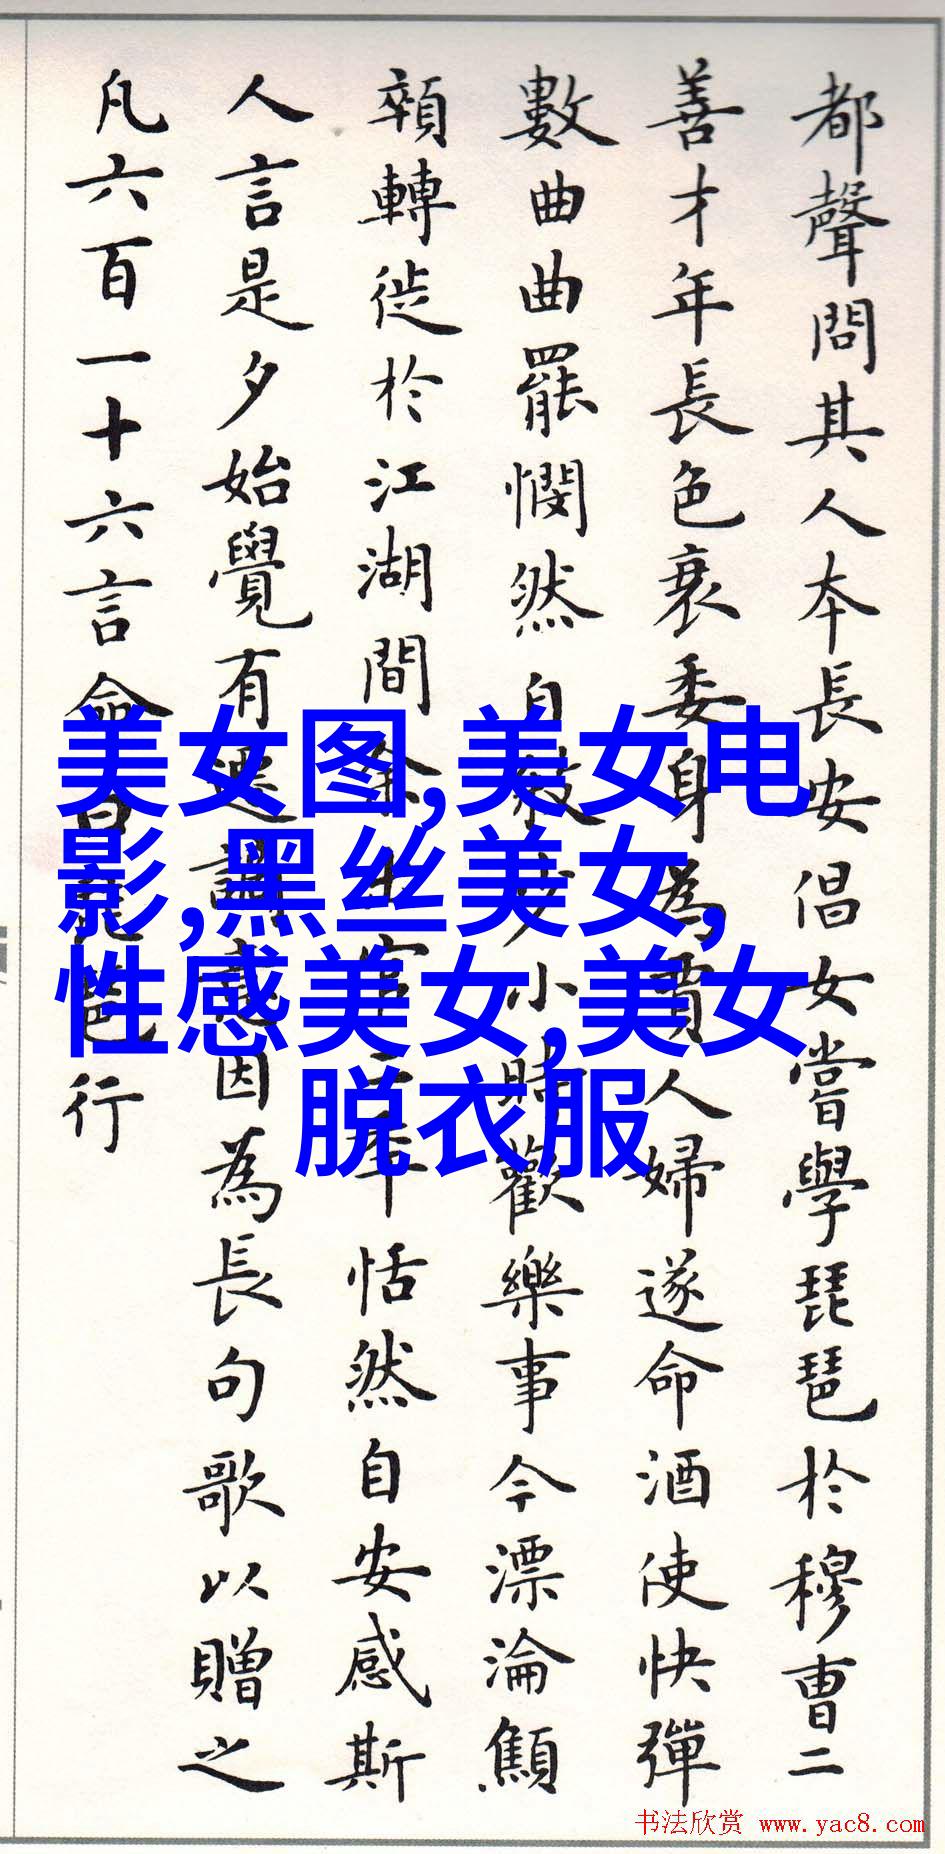 都聲問其人本長安倡女嘗學琵琶於穆曹二
善才年長色衰委身為賈人婦遂命酒使快彈
數曲曲罷憫然自敘少小時歡樂事今漂淪顦
顇轉徙於江湖間余出官二年恬然自安感斯
人言是夕始覺有遷謫意因為長句歌以贈之
凡六百一十六言命曰琵琶行
美女图,美女电
影,黑丝美女,
性感美女,美女
脱衣服
书法欣赏 www.yac8.com